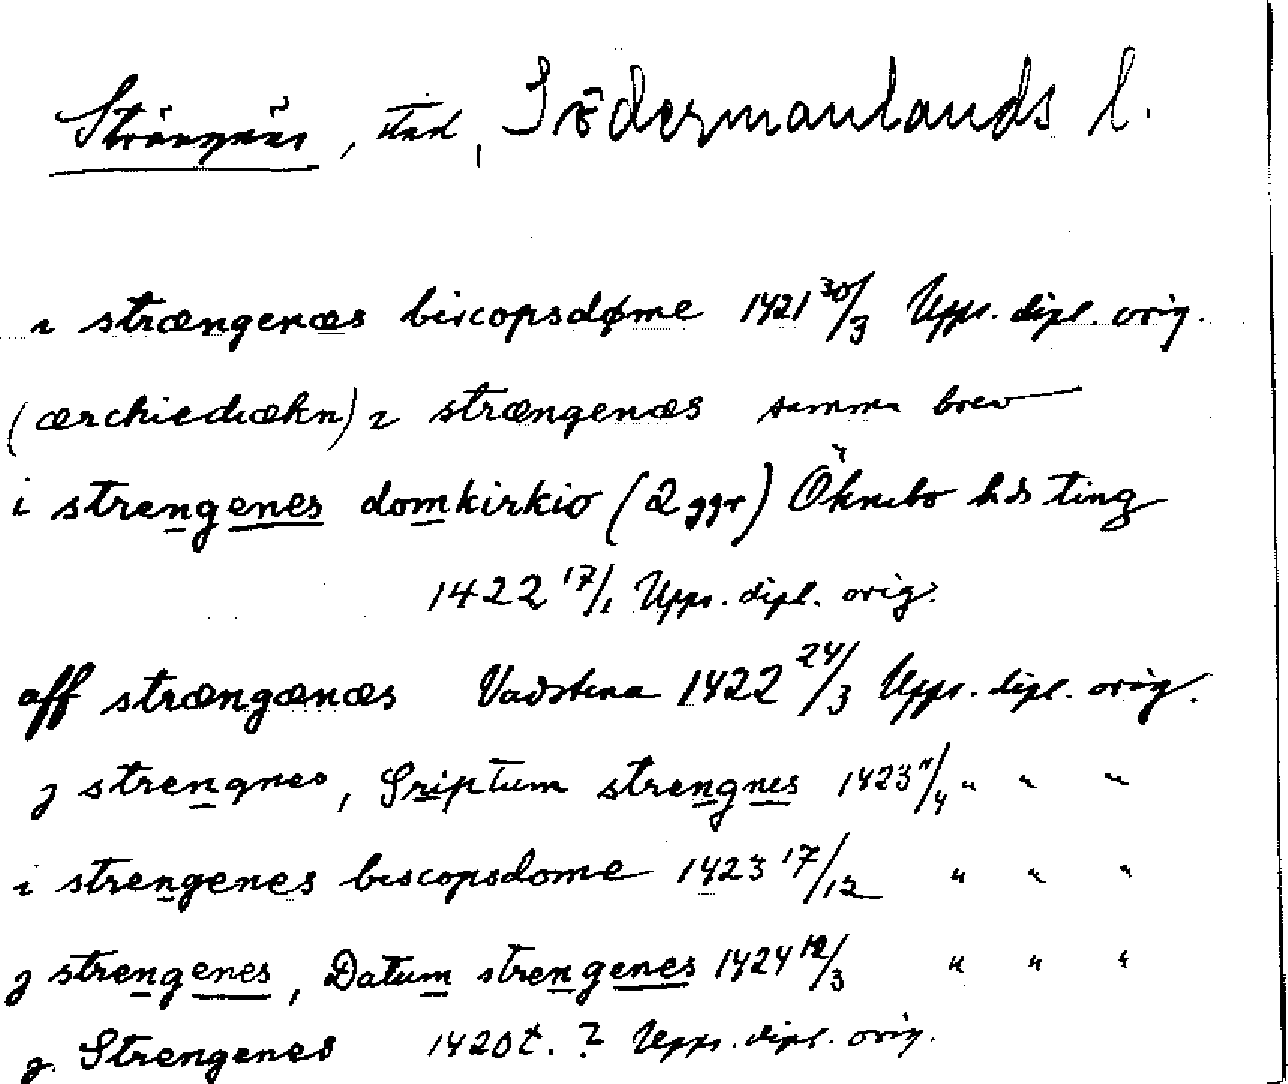 Strängnäs, stad, Södermanlands l.
i strængenæs biscopsdøme 1421 30/3 Upps. dipl. orig.
(ærchiediækn) i strængenæs samma brev
i strengenes domkirkio (2 ggr) Öknebo hds ting
1422 17/1 Upps. dipl. orig.
aff strængænæs Vadstena 1422 24/3 Upps. dipl. orig.
j strengnes, Scriptum strengnes 1423 11/4 " " "
i strengenes biscopsdome 1423 17/12 " " "
j strengenes, Datum strengenes 1424 12/3 " " "
j Strengenes 1420 t. ? Upps. dipl. orig.